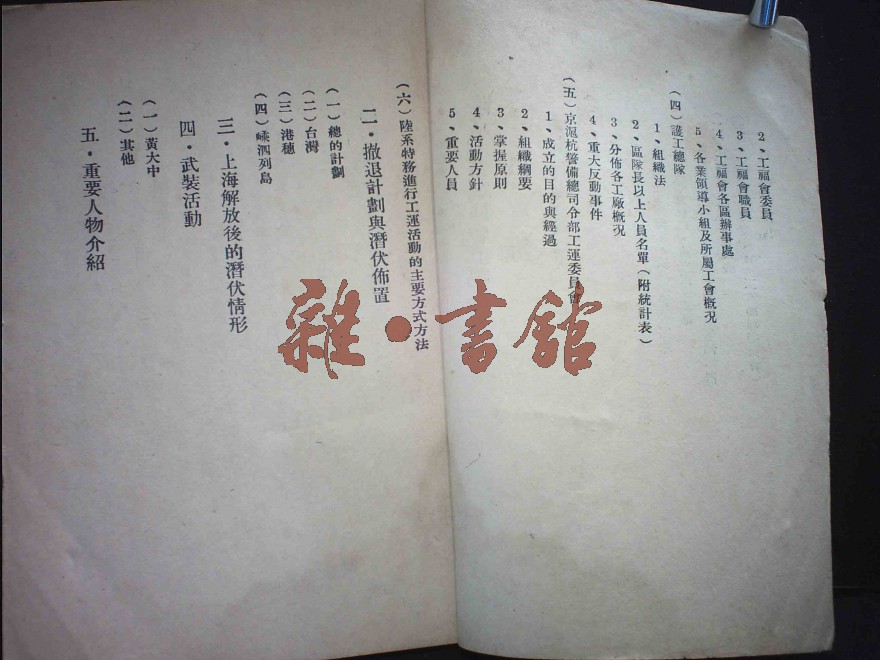 2、工福會委員
3、工福會職員
4、工福會各區辦事處
5、各業領導小組及所屬工會概況
（四）護工總隊
1、組織法
2、區隊長以上人員名單（附統計表）
3、分佈各工廠概況
4、重大反動事件
（五）京滬杭警備總司令部工運委員會
1、成立的目的與經過
2、組織綱要
3、掌握原則
4、活動方針
5、重要人員
（六）陸系特務進行工運活動的主要方式方法
二・撤退計劃與潛伏佈置
（一）總的計劃
（二）台灣
（三）港穗
（四）嵊泗列島
三・上海解放後的潛伏情形
四・武裝活動
（一）黃大中
（二）其他
五・重要人物介紹
雜・書館